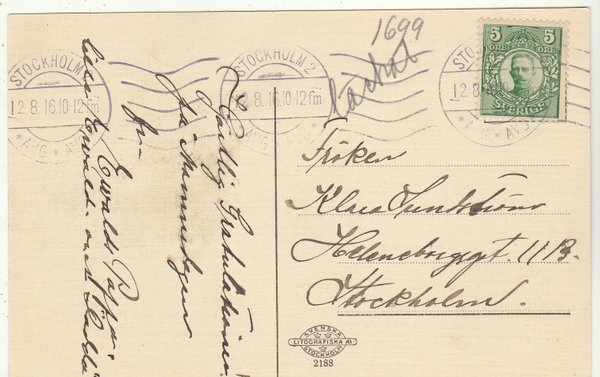 1699
STOCKHOLM 2
12.8.16.10-12fm
* AVG * AVG
STOCKHOLM 2
12.8.16.10-12fm
AVG
STO
12.8
* AVG * AVG
5 5
ÖRE ÖRE
SVERIGE
Hjärtlig Gratulation
på Namnsdagen
från
Ewalds Pappa.
Ewald
Fröken
Klara Sundström
Heleneborgsgt. 11 B.
Stockholm.
SVENSKA
LITOGRAFISKA AB
STOCKHOLM
2188